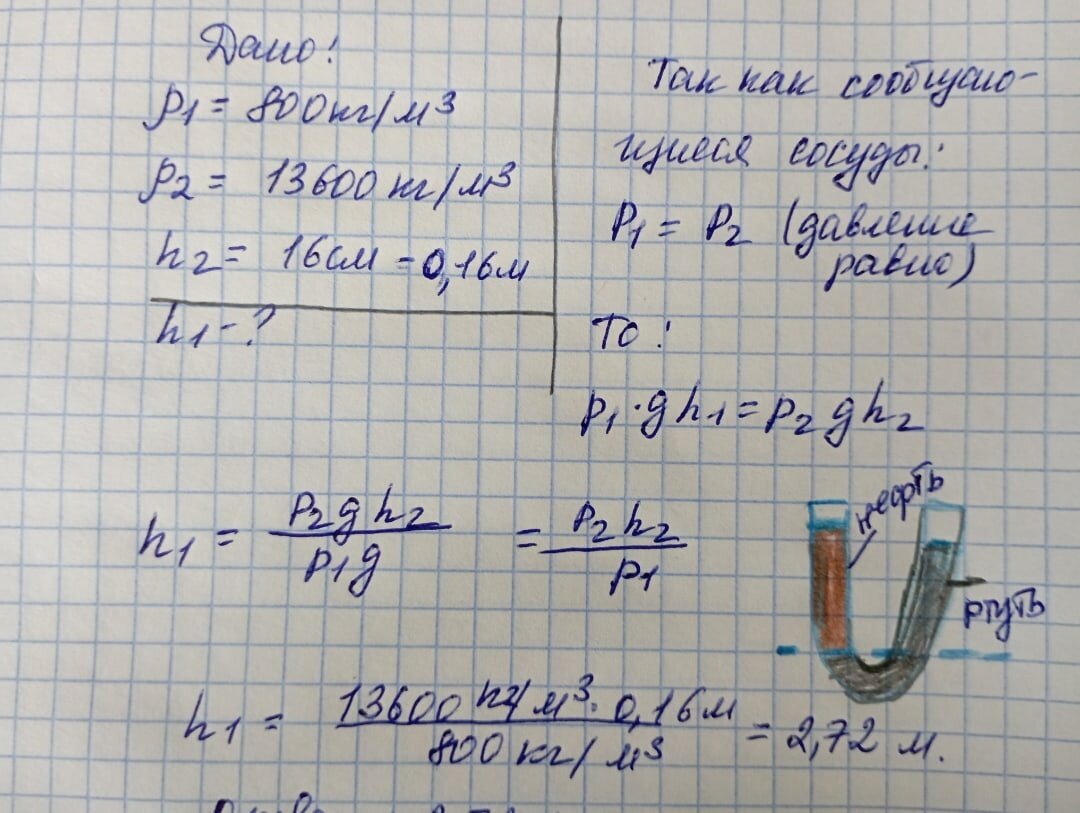 Дано:
ρ1 = 800кг/м³
ρ2 = 13600 кг/м³
h2 = 16см = 0,16м
h1 - ?
Так как сообщаю-
щиеся сосуды:
P1 = P2 (давление
равно)
То:
ρ1·gh1 = ρ2gh2
h1 = ρ2gh2/ρ1g = ρ2h2/ρ1
нефть
ртуть
h1 = 13600 кг/м³·0,16м/800 кг/м³ = 2,72 м.